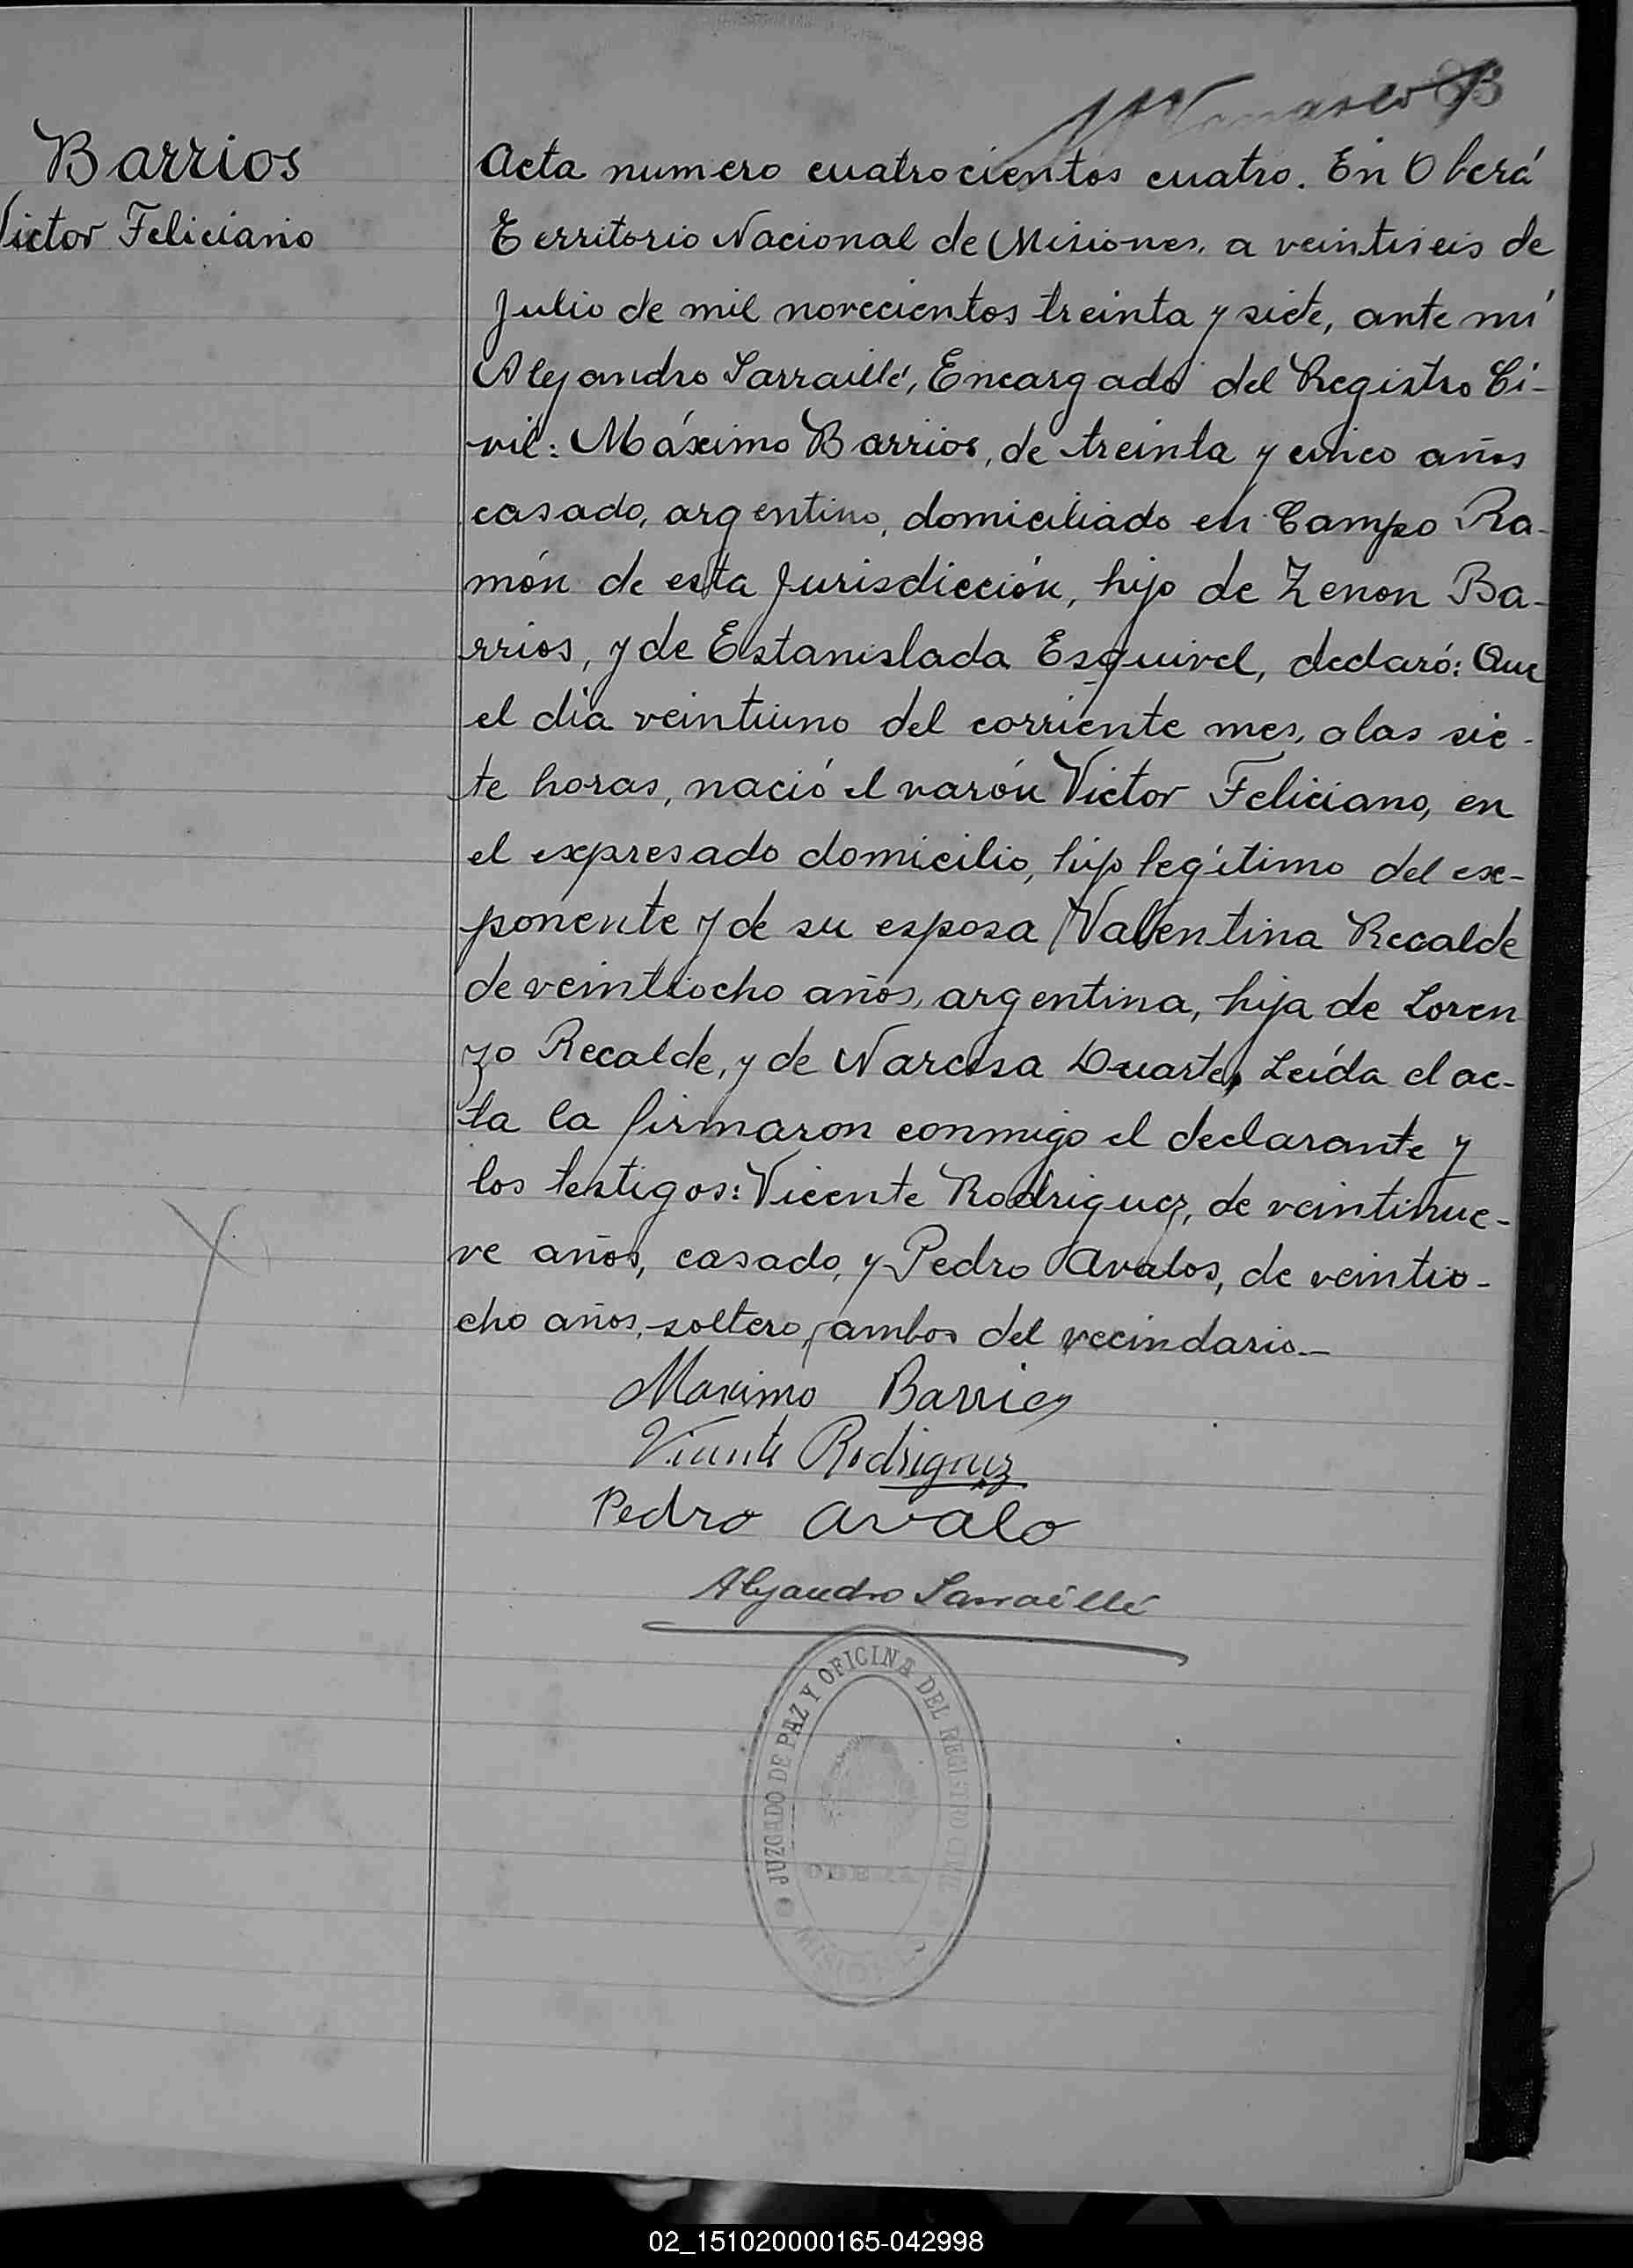 Barrios
Victor Feliciano
83
Acta numero cuatrocientos cuatro. En Oberá
Territorio Nacional de Misiones, a veintiseis de
Julio de mil novecientos treinta y siete, ante mí
Alejandro Sarraillé, Encargado del Registro Ci-
vil: Máximo Barrios, de treinta y cinco años
casado, argentino, domiciliado en Campo Ra-
món de esta Jurisdicción, hijo de Zenon Ba-
rrios, y de Estanislada Esquivel, declaró: Que
el día veintiuno del corriente mes, a las sie-
te horas, nació el varón Victor Feliciano, en
el expresado domicilio, hijo legítimo del ex-
ponente y de su esposa Valentina Recalde
de veintiocho años, argentina, hija de Loren
zo Recalde, y de Narcisa Duarte, Leída el ac-
ta la firmaron conmigo el declarante y
los testigos: Vicente Rodriguez, de veintinue-
ve años, casado, y Pedro Avalos, de veintio-
cho años, soltero, ambos del vecindario.-
Maximo Barrios
Vicente Rodriguez
Pedro Avalo
Alejandro Sarraillé
JUZGADO DE PAZ Y OFICINA DEL REGISTRO CIVIL
OBERA
MISIONES
02_151020000165-042998